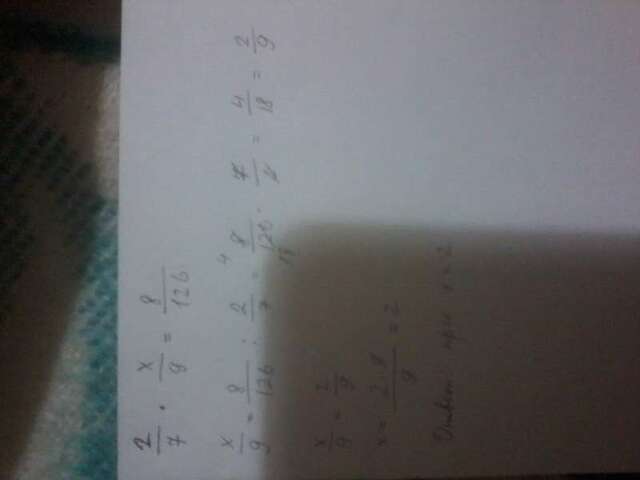 2/7 · x/9 = 8/126
x/9 = 8/126 : 2/7 = 8/126 · 7/2 = 4/18 = 2/9
x/9 = 2/9
x = 2·9/9 = 2
Ответ: при x = 2